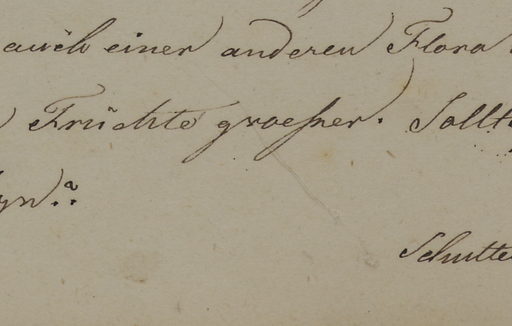 auch einer anderen Flora
Früchte groesser. Sollt
yn.?
Schutte